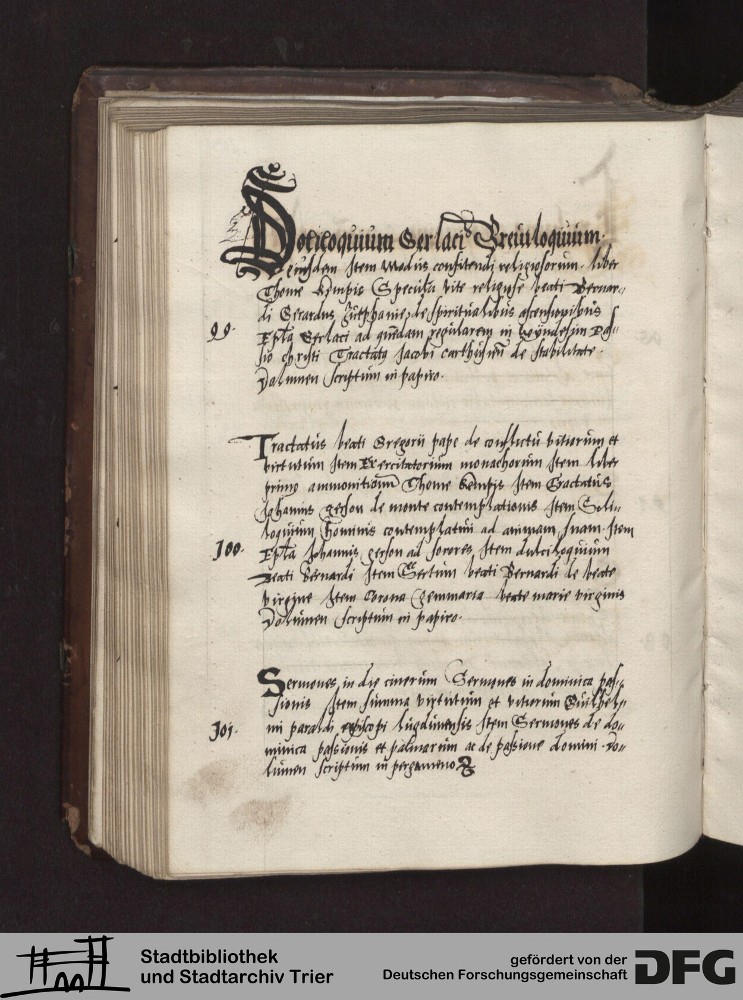 Soliloquium Gerlaci Breuiloquium.
eiusdem Item Modus confitendi religiosorum. liber
Thome Kempis Specula vite religiose beati Bernar=
di Gerardus Zutphanie, de spiritualibus ascensionibus
99. Epla Gerlaci ad quendam regularem in wyndesim Pas=
sio christi Tractatus Jacobi carthusien de stabilitate.
Volumen scriptum in papiro.
Tractatus beati Gregorii pape de conflictu vitiorum et
virtutum Item Exercitatorium monachorum Item liber
primo ammonitionum Thome Kempis Item Tractatus
Johannis gerson de monte contemplationis Item Soli=
loquium hominis contemplatiui ad animam suam. Item
100. Epla Johannis gerson ad sorores Item dulciloquium
beati Bernardi Item Sertum beati Bernardi de beate
virgine Item Corona gemmaria beate marie virginis
Volumen scriptum in papiro.
Sermones in die cinerum Sermones in dominica pas=
sionis Item summa virtutum et vitiorum Guilhel=
101. mi paraldi episcopi lugdunensis Item Sermones de do=
minica passionis et palmarum ac de passione domini. Vo=
lumen scriptum in pergameno
Stadtbibliothek
und Stadtarchiv Trier
gefördert von der
Deutschen Forschungsgemeinschaft
DFG